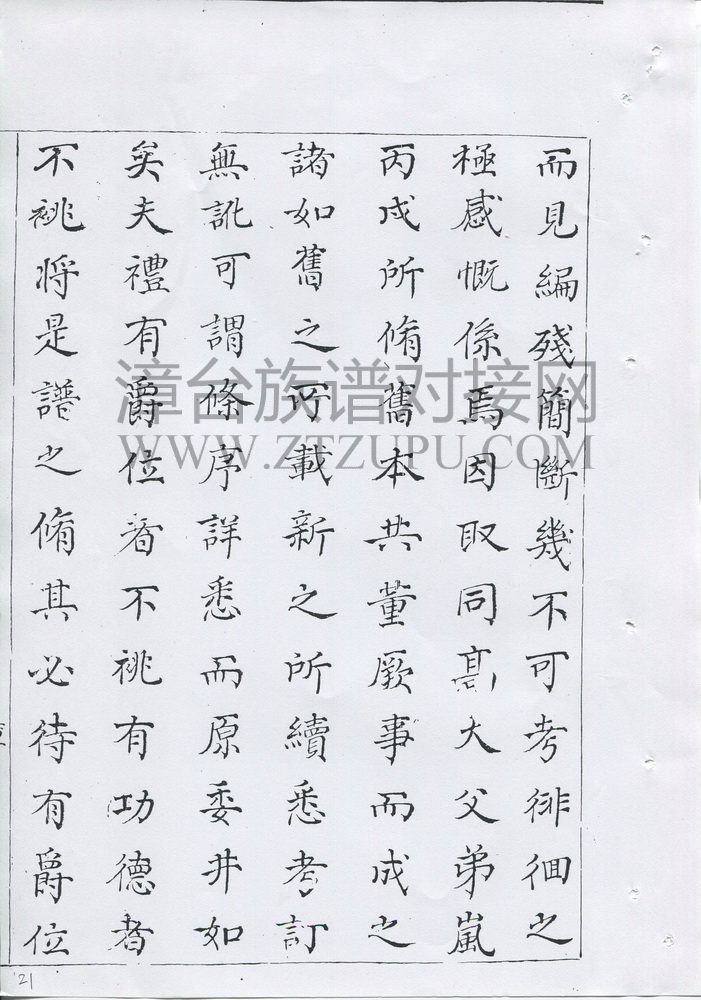 而見編殘簡斷幾不可考徘徊之
極感慨係焉因取同髙大父弟嵐
丙戌所脩舊本共董厥事而成之
諸如舊之所載新之所續悉考訂
無訛可謂條序詳悉而原委井如
矣夫禮有爵位者不祧有功德者
不祧將是譜之脩其必待有爵位
漳台族谱对接网
WWW.ZTZUPU.COM
21